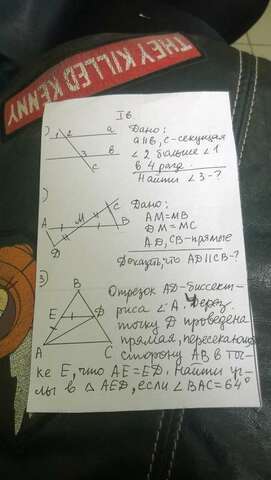 THEY KILLED KENNY
I в
1) Дано:
a||b, c-секущая
∠2 больше ∠1
в 4 раза.
Найти ∠3-?
1 2 a
3 b
c
) Дано:
AM=MB
DM=MC
AD, CB-прямые
Доказать, что AD||CB-?
A M C B D
3) Отрезок AD-биссект-
риса ∠A. Через
точку D проведена
прямая, пересекающ
сторону AB в точ-
ке E, что AE=ED. Найти уг-
лы в △ AED, если ∠BAC=64°
B
E D
A C